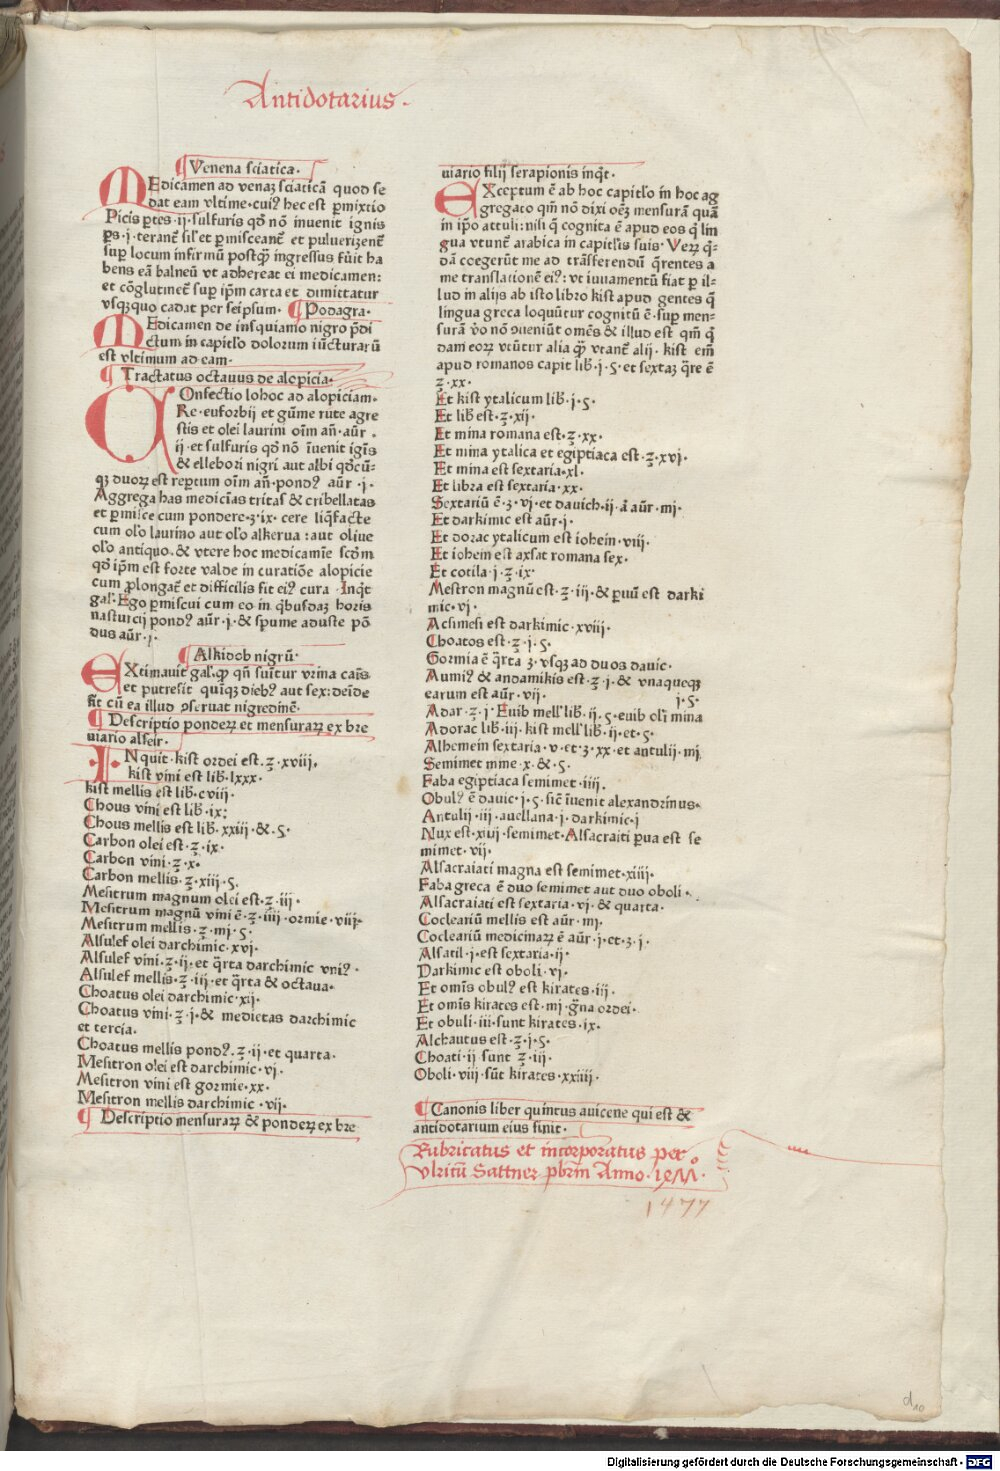 Antidotarius.
¶ Venena sciatica.
MEdicamen ad venaꝫ sciaticã quod se
dat eam vltime·cuiꝰ hec est ꝑmixtio
Picis ꝑtes·ij·sulfuris qđ nõ inuenit ignis
ꝑs·j·terant᷑ sil᷑ et ꝑmisceant᷑ et puluerizent᷑
suꝑ locum infirmũ postꝗ̃ ingressus fuit ha
bens eã balneũ vt adhereat ei medicamen:
et cõglutinet᷑ suꝑ ip̃m carta et dimittatur
vsqꝫquo cadat per seipsum· ¶ Podagra·
MEdicamen de iusquiamo nigro p̃di
ctum in capitl̃o dolorum iũcturarũ
est vltimum ad eam·
¶ Tractatus octauus de alopicia·
COnfectio lohoc ad alopiciam·
Re·euforbij et gũme rute agre
stis et olei laurini oĩm añ·aũr·
ij·et sulfuris qđ nõ ĩuenit igĩs
& ellebori nigri aut albi qđcũ-
qꝫ duoꝝ est reꝑtum oĩm añ·pondꝰ aũr·j·
Aggrega has medicĩas tritas & cribellatas
et ꝑmisce cum pondere·ʒ·ix·cere liq̃facte
cum ol̃o laurino aut ol̃o alkerua:aut oliue
ol̃o antiquo·& vtere hoc medicamĩe scđm
qđ ip̃m est forte valde in curatiõe alopicie
cum ꝓlongat᷑ et difficilis fit eiꝰ cura·Inq̃t
gal·Ego ꝑmiscui cum eo in q̃busdaꝫ horis
nasturcij pondꝰ aũr·j·& spume aduste põ
dus aũr·j·
¶ Alkidob nigrũ·
EXtimauit gal·ꝙ qñ sum̃tur vrina cañis
et putresit quĩqꝫ diebꝰ aut sex:deĩde
fit cũ ea illud ꝯseruat nigredinẽ·
¶ Descriptio pondeꝝ et mensuraꝝ ex bre
uiario alseir·
INquit·kist ordei est·℥·xviij·
kist vini est lib·lxxx·
kist mellis est lib·cviij·
Chous vini est lib·ix:
Chous mellis est lib·xxiij·&·ꝭ·
Carbon olei est·℥·ix·
Carbon vini·℥·x·
Carbon mellis·℥·xiij·ꝭ·
Mesitrum magnum olei est·℥·iij·
Mesitrum magnũ vini ẽ·℥·iiij·ozmie·viij·
Mesitrum mellis·℥·mj·ꝭ·
Alsulef olei darchimic·xvj·
Alsulef vini·℥·ij·et q̃rta darchimic vniꝰ·
Alsulef mellis·℥·iij·et q̃rta & octaua·
Choatus olei darchimic·xij·
Choatus vini·℥·j·& medietas darchimic
et tercia·
Choatus mellis pondꝰ·℥·ij·et quarta·
Mesitron olei est darchimic·vj·
Mesitron vini est gormie·xx·
Mesitron mellis darchimic·vij·
¶ Descriptio mensuraꝝ & pondeꝝ ex bre
uiario filij serapionis inq̃t·
EXceptum ẽ ab hoc capitl̃o in hoc ag
gregato qm̃ nõ dixi oẽꝫ mensurã quã
in ip̃o attuli:nisi q̃ cognita ẽ apud eos q̃ lin
gua vtunt᷑ arabica in capitl̃is suis·Veꝝ q̃-
dã coegerũt me ad trãsferendũ q̃rentes a
me translationẽ eiꝰ:vt iuuamentũ fiat ꝑ il-
lud in alijs ab isto libro kist apud gentes q̃
lingua greca loquũtur cognitũ ẽ·suꝑ men-
surã v̾o nõ ꝯueniũt omẽs & illud est qm̃ q̃
dam eoꝝ vtũtur alia ꝙ̃ vtant᷑ alij·kist em̃
apud romanos capit lib·j·ꝭ·et sextaꝫ q̃re ẽ
℥·xx·
Et kist ytalicum lib·j·ꝭ·
Et lib est·℥·xij·
Et mina romana est·℥·xx·
Et mina ytalica et egiptiaca est·℥·xvj·
Et mina est sextaria·xl·
Et libra est sextaria·xx·
Sextariũ ẽ·ʒ·vj·et dauich·ij·a᷑ aũr·mj·
Et darkimic est aũr·j·
Et dorac ytalicum est iohein·viij·
Et iohein est axsat romana sex·
Et cotila·j·℥·ix·
Mestron magnũ est·℥·iij·& ꝑuũ est darki
mic·vj·
Acsimesi est darkimic·xviij·
Choatos est·℥·j·ꝭ·
Gormia ẽ q̃rta ʒ·vsqꝫ ad duos dauic·
Aumiꝰ & andamikis est·℥·j·& vnaqueqꝫ
earum est aũr·vij· j·ꝭ·
Adar·℥·j·Euib mell̃ lib·ij·ꝭ·euib ol̃i mina
Adorac lib·iij·kist mell̃ lib·ij·et·ꝭ·
Alhemein sextaria·v·et·ʒ·xx·et antulij·mj·
Semimet mine·x·&·ꝭ·
Faba egiptiaca semimet·iiij·
Obulꝰ ẽ dauic·j·ꝭ·sic̃ ĩuenit alexandrinus·
Antulij·iij·auellana·j·darkimic·j
Nux est·xiiij·semimet·Alsacraiti ꝑua est se
mimet·vij·
Alsacraiati magna est semimet·xiiij·
Faba greca ẽ duo semimet aut duo oboli·
Alsacraiati est sextaria·vj·& quarta·
Cocleariũ mellis est aũr·mj·
Cocleariũ medicinaꝝ ẽ aũr·j·et·ʒ·j·
Alsatil·j·est sextaria·ij·
Darkimic est oboli·vj·
Et omĩs obulꝰ est kirates·iij·
Et omĩs kirates est·mj·g̃na ordei·
Et obuli·iij·sunt kirates·ix·
Alchautus est·℥·j·ꝭ·
Choati·ij·sunt·℥·iij·
Oboli·viij·sũt kirates·xxiiij·
¶ Canonis liber quintus auicene qui est &
antidotarium eius finit·
Rubricatus et incorporatus per
vlricũ Sattner pbrm̃ Anno·1477°·
1477
d10
Digitalisierung gefördert durch die Deutsche Forschungsgemeinschaft · DFG